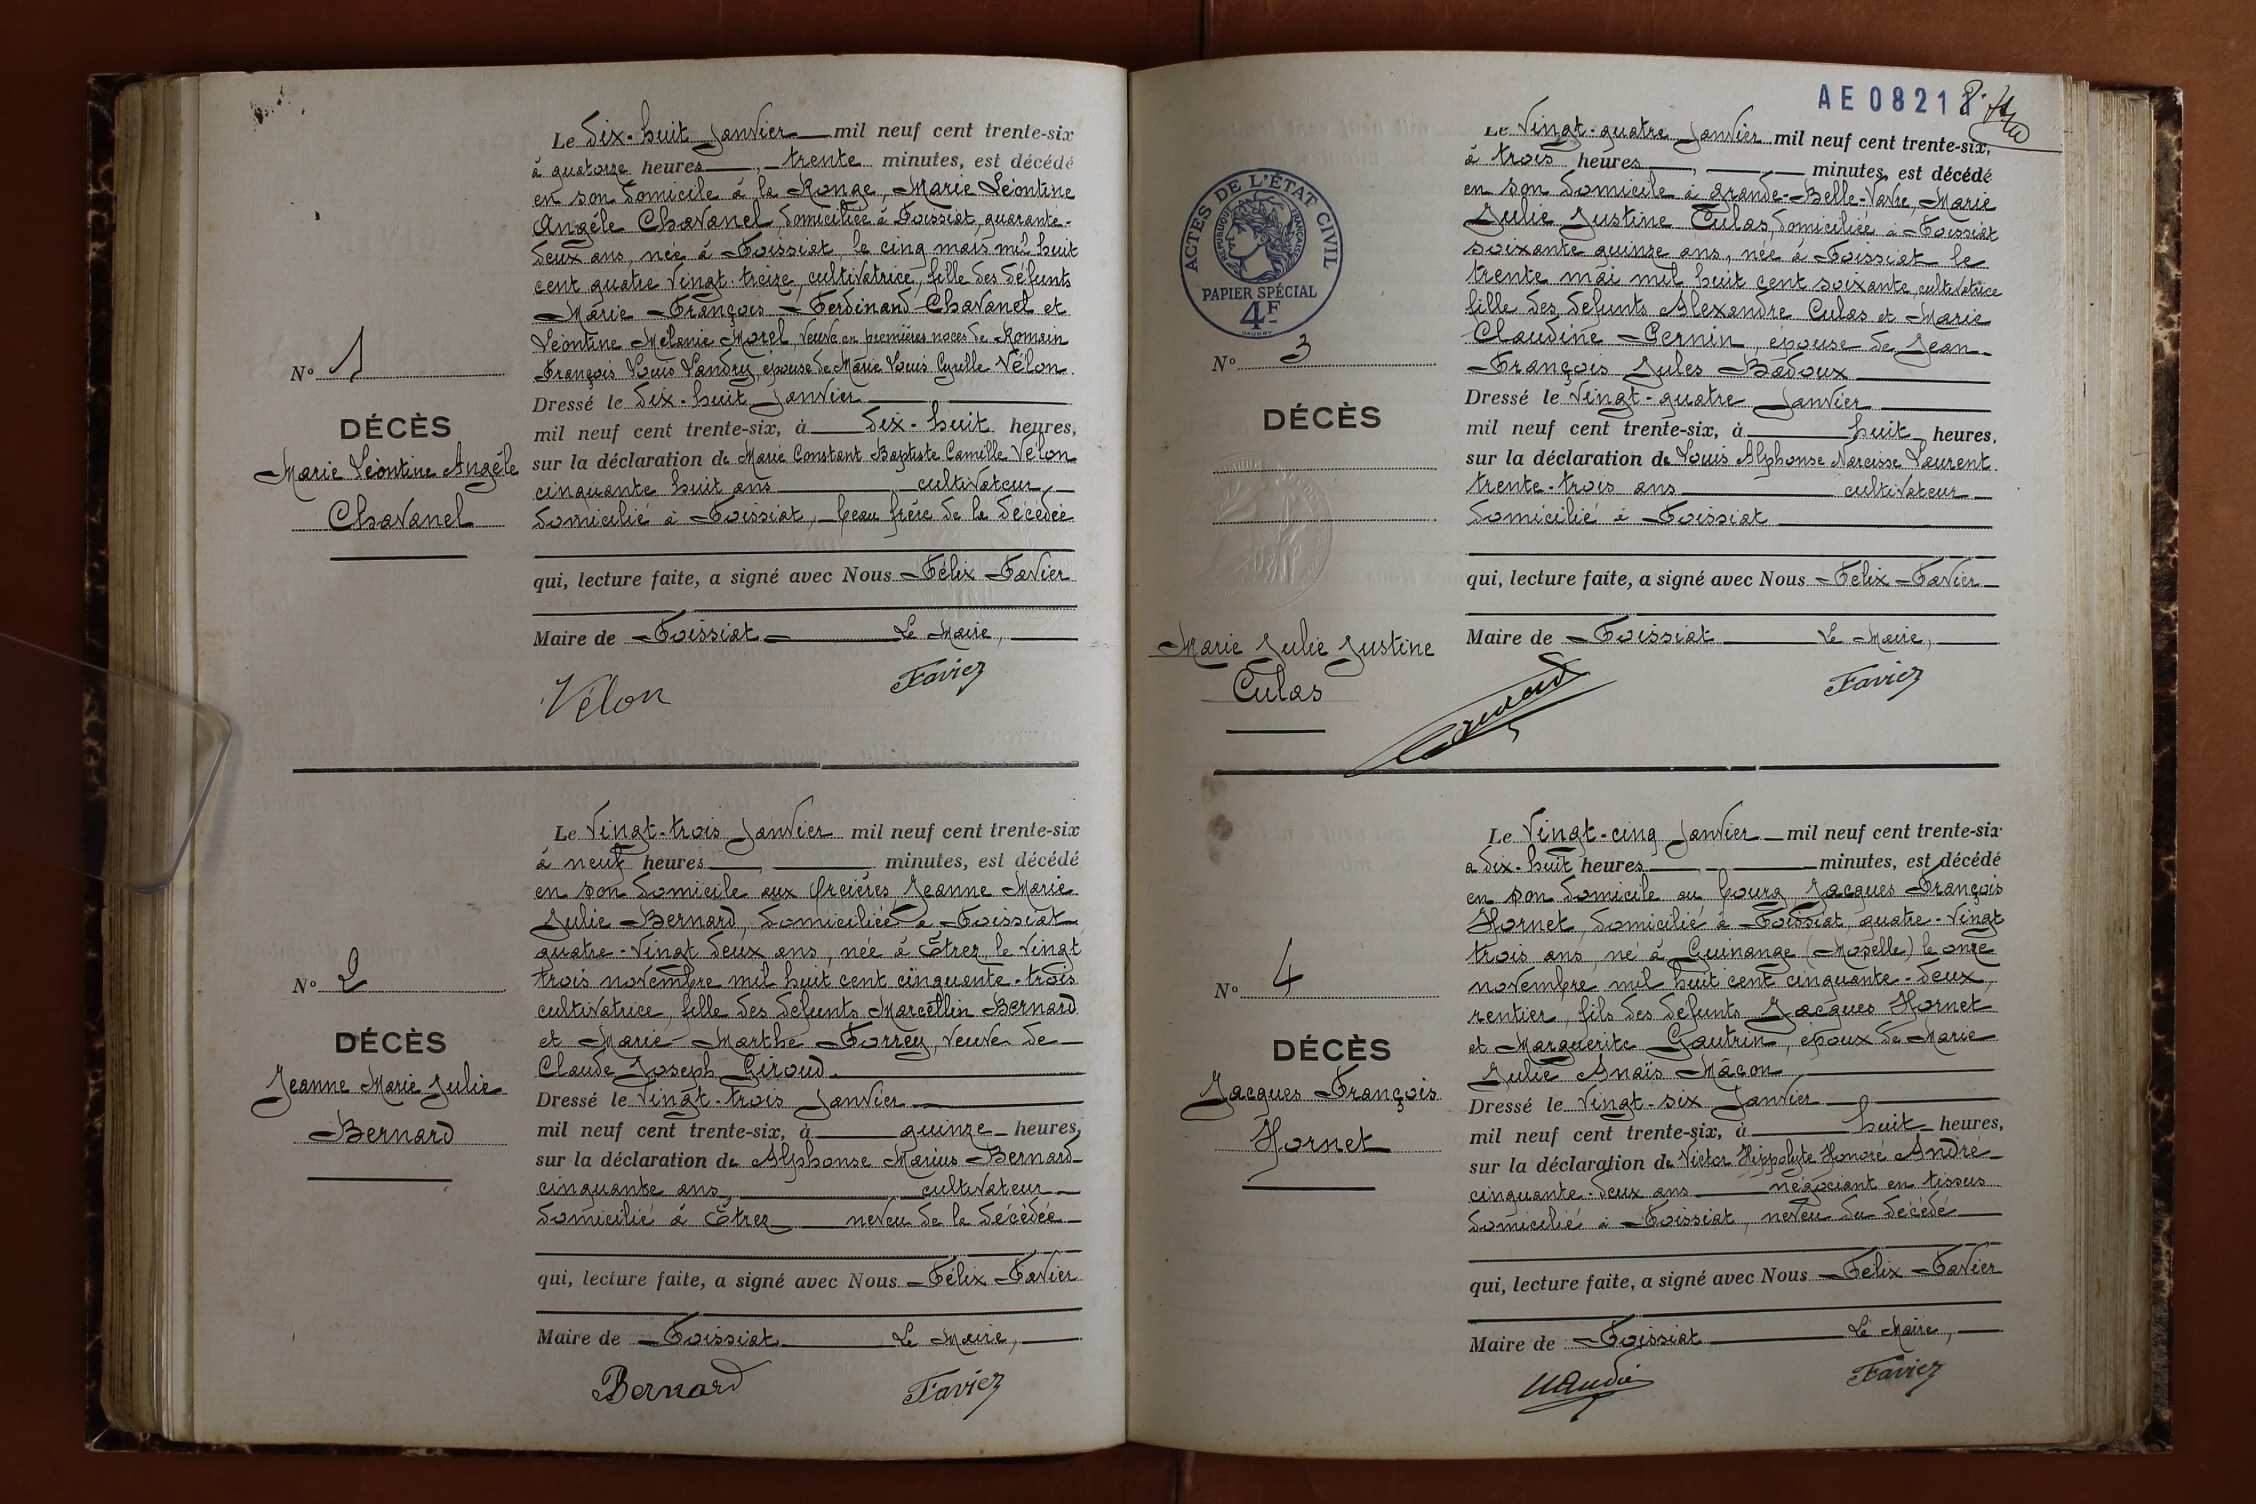 Le dix-huit Janvier mil neuf cent trente-six
à quatorze heures, trente minutes, est décédé
en son domicile à la Ronge, Marie Léontine
Angèle Chavanel, domiciliée à Foissiat, quarante-
deux ans, née à Foissiat, le cinq mars mil huit
cent quatre vingt-treize, cultivatrice, fille des défunts
Marie François Ferdinand Chavanel et
Léontine Mélanie Morel, veuve en premières noces de Romain
François Louis Landry, épouse de Marie Louis Cyrille Vélon.
N° 1
Dressé le dix-huit Janvier
DÉCÈS
mil neuf cent trente-six, à dix-huit heures,
Marie Léontine Angèle
sur la déclaration de Marie Constant Baptiste Camille Vélon
cinquante huit ans cultivateur,
Chavanel
domicilié à Foissiat, beau frère de la décédée
qui, lecture faite, a signé avec Nous Félix Favier
Maire de Foissiat Le Maire,
Vélon Favier
Le Vingt-trois Janvier mil neuf cent trente-six
à neuf heures, minutes, est décédé
en son domicile aux Jeanne Marie
Julie Bernard, domiciliée à Foissiat
quatre-vingt deux ans, née à Etrez, le vingt
trois novembre mil huit cent cinquante-trois
N° 2
cultivatrice, fille des défunts Marcellin Bernard
et Marie Marthe Forrey, veuve de
DÉCÈS
Claude Joseph Giroud.
Jeanne Marie Julie
Dressé le Vingt-trois Janvier
Bernard
mil neuf cent trente-six, à quinze heures,
sur la déclaration de Alphonse Marius Bernard
cinquante ans, cultivateur
domicilié à Etrez neveu de la décédée
qui, lecture faite, a signé avec Nous Félix Favier
Maire de Foissiat Le Maire,
Bernard Favier
AE 0821
Le Vingt-quatre Janvier mil neuf cent trente-six,
à trois heures, minutes, est décédé
en son domicile à Grande-Belle-Vavre, Marie
Julie Justine Culas, domiciliée à Foissiat
soixante quinze ans, née à Foissiat le
trente mai mil huit cent soixante, cultivatrice
fille des défunts Alexandre Culas et Marie
Claudine Pernin, épouse de Jean
François Jules Badoux
ACTES DE L'ÉTAT CIVIL
RÉPUBLIQUE FRANÇAISE
PAPIER SPÉCIAL
4F
N° 3
Dressé le Vingt-quatre Janvier
DÉCÈS
mil neuf cent trente-six, à huit heures,
sur la déclaration de Louis Alphonse Narcisse Laurent
trente-trois ans cultivateur
domicilié à Foissiat
qui, lecture faite, a signé avec Nous Félix Favier
Maire de Foissiat Le Maire,
Marie Julie Justine
Culas
Favier
Le Vingt-cinq Janvier mil neuf cent trente-six
à dix-huit heures, minutes, est décédé
en son domicile au bourg, Jacques François
Hornet, domicilié à Foissiat, quatre-vingt
trois ans, né à Guinange (Moselle) le onze
novembre mil huit cent cinquante-deux,
N° 4
rentier, fils des défunts Jacques Hornet
et Marguerite Gautrin, époux de Marie
DÉCÈS
Julie Anaïs Mâcon
Jacques François
Dressé le Vingt-six Janvier
Hornet
mil neuf cent trente-six, à huit heures,
sur la déclaration de Victor Hippolyte Honoré André
cinquante-deux ans négociant en tissus
domicilié à Foissiat, neveu du décédé
qui, lecture faite, a signé avec Nous Félix Favier
Maire de Foissiat Le Maire,
Favier